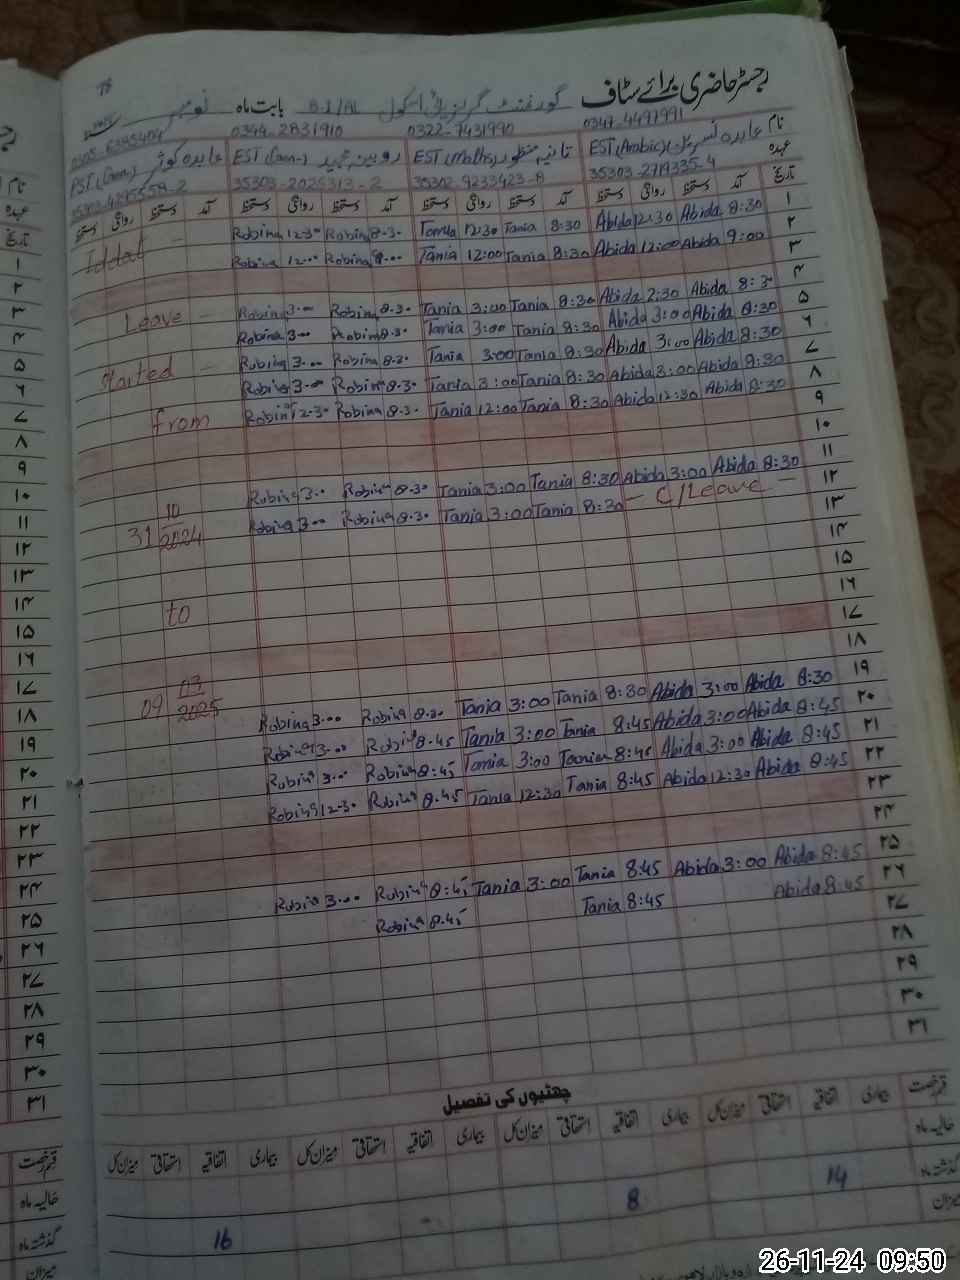 رجسٹر حاضری برائے سٹاف گورنمنٹ گرلز ہائی اسکول بابت ماہ نومبر
78
0347-4497991 0322-7431990 0344-2831910 0305-6385404
نام
EST (Arabic) EST (Maths) EST (Gen-) PST (Gen-)
عہدہ
35303-2719335-4 35302-9233423-8 35303-2025313-2
تاریخ آمد دستخط روانگی دستخط آمد دستخط روانگی دستخط آمد دستخط روانگی دستخط آمد دستخط روانگی دستخط
Iddat - Robina 12-30 Robina 8-30 Tania 12:30 Tania 8:30 Abida 12:30 Abida 8:30 ۱
Robina 12-00 Robina 9-00 Tania 12:00 Tania 8:30 Abida 12:00 Abida 9:00 ۲
۳
Leave - Robina 3-00 Robina 8-30 Tania 3:00 Tania 8:30 Abida 2:30 Abida 8:30 ۴
Robina 3-00 Robina 8-30 Tania 3:00 Tania 8:30 Abida 3:00 Abida 8:30 ۵
Started - Robina 3-00 Robina 8-30 Tania 3:00 Tania 8:30 Abida 3:00 Abida 8:30 ۶
Robina 3-00 Robina 8-30 Tania 3:00 Tania 8:30 Abida 3:00 Abida 8:30 ۷
from Robina 12-30 Robina 8-30 Tania 12:00 Tania 8:30 Abida 12:30 Abida 8:30 ۸
۹
۱۰
Robina 3-00 Robina 8-30 Tania 3:00 Tania 8:30 Abida 3:00 Abida 8:30 ۱۱
31 10 2024 Robina 3-00 Robina 8-30 Tania 3:00 Tania 8:30 - C/Leave - ۱۲
۱۳
۱۴
to ۱۵
۱۶
۱۷
۱۸
09 03 2025 Robina 3-00 Robina 8-30 Tania 3:00 Tania 8:30 Abida 3:00 Abida 8:30 ۱۹
Robina 3-00 Robina 8-45 Tania 3:00 Tania 8:45 Abida 3:00 Abida 8:45 ۲۰
Robina 3-00 Robina 8:45 Tania 3:00 Taania 8:45 Abida 3:00 Abida 8:45 ۲۱
Robina 12-30 Robina 8.45 Tania 12:30 Tania 8:45 Abida 12:30 Abida 8:45 ۲۲
۲۳
۲۴
Robina 3-00 Robina 8:45 Tania 3:00 Tania 8:45 Abida 3:00 Abida 8:45 ۲۵
Robina 8-45 Tania 8:45 Abida 8:45 ۲۶
۲۷
۲۸
۲۹
۳۰
۳۱
چھٹیوں کی تفصیل
قسم رخصت بیماری اتفاقیہ استحقاقی میزان کل بیماری اتفاقیہ استحقاقی میزان کل بیماری اتفاقیہ استحقاقی میزان کل بیماری اتفاقیہ استحقاقی میزان کل
حالیہ ماہ
گذشتہ ماہ 14 8 16
میزان
26-11-24 09:50